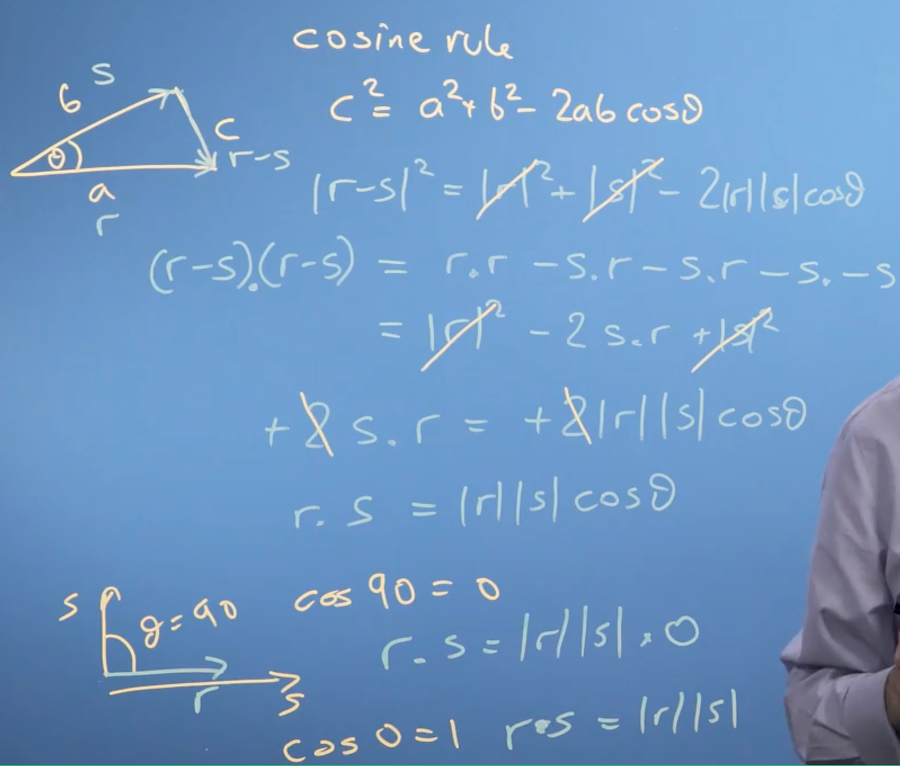 cosine rule
s
b
c² = a² + b² - 2ab cosθ
c
θ
r-s
a
r
|r-s|² = |r|² + |s|² - 2|r||s|cosθ
(r-s).(r-s) = r.r - s.r - s.r - s.-s
= |r|² - 2 s.r + |s|²
+2 s.r = +2|r||s|cosθ
r.s = |r||s|cosθ
s
θ=90
cos 90 = 0
r.s = |r||s| × 0
r
s
cos 0 = 1
r.s = |r||s|